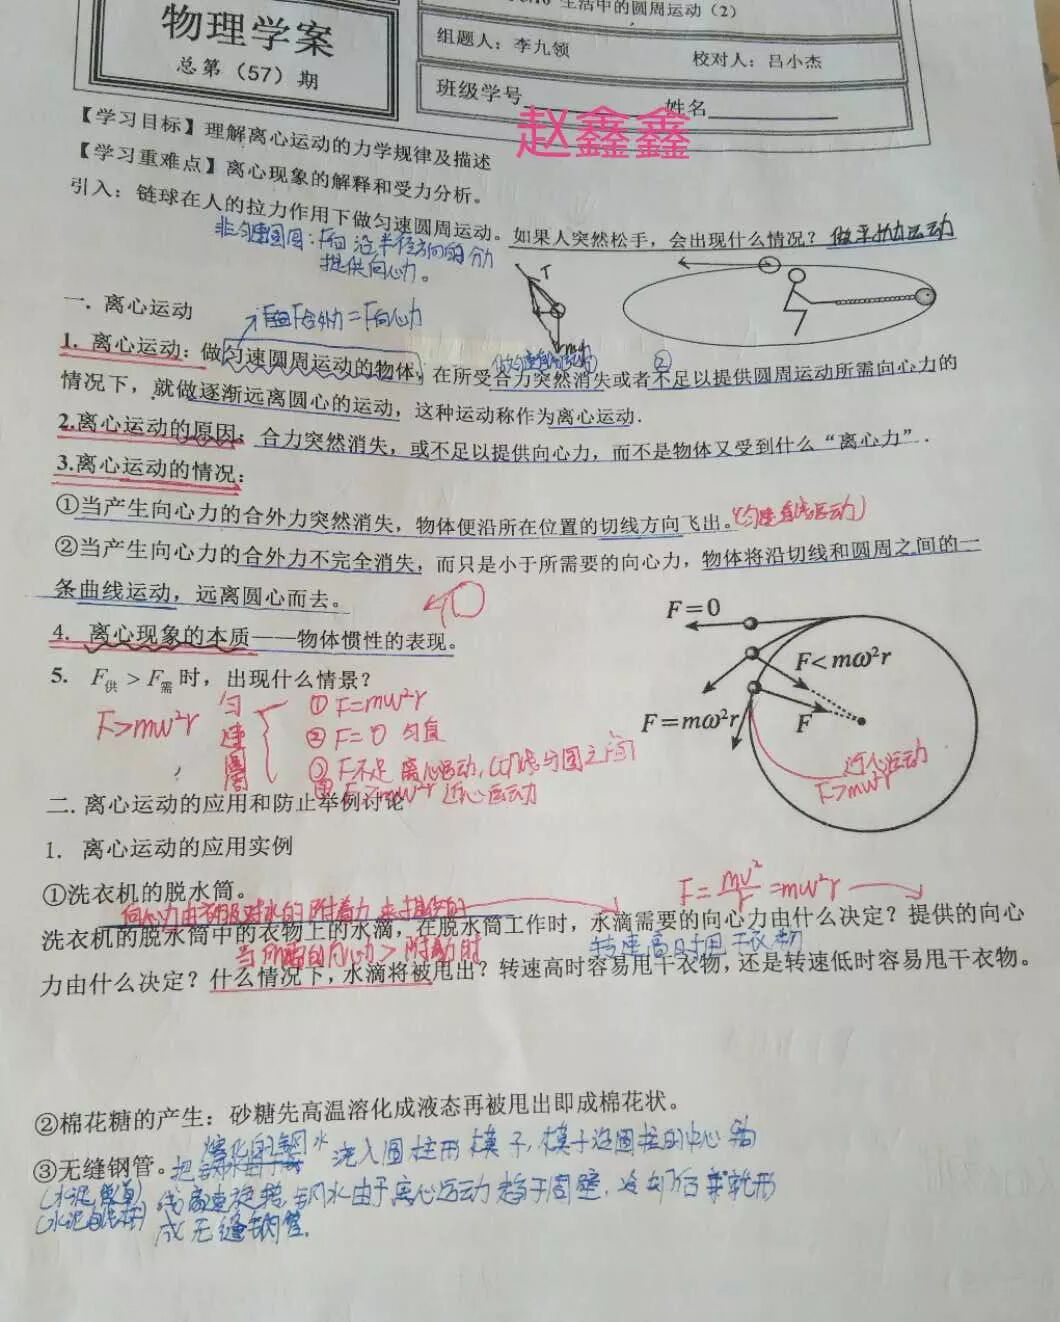 生活中的圆周运动（2）
物理学案
总第（57）期
组题人：李九领 校对人：吕小杰
班级学号 姓名
赵鑫鑫
【学习目标】理解离心运动的力学规律及描述
【学习重难点】离心现象的解释和受力分析。
引入：链球在人的拉力作用下做匀速圆周运动。如果人突然松手，会出现什么情况？做平抛运动
非匀速圆周：F向 沿半径方向的分力
提供向心力。
T
mg
一．离心运动
F合外力＝F向心力
1．离心运动：做匀速圆周运动的物体，在所受合力突然消失或者不足以提供圆周运动所需向心力的
①
②
情况下，就做逐渐远离圆心的运动，这种运动称作为离心运动．
2.离心运动的原因：合力突然消失，或不足以提供向心力，而不是物体又受到什么“离心力”．
3.离心运动的情况：
①当产生向心力的合外力突然消失，物体便沿所在位置的切线方向飞出。（匀速直线运动）
②当产生向心力的合外力不完全消失，而只是小于所需要的向心力，物体将沿切线和圆周之间的一
条曲线运动，远离圆心而去。
4．离心现象的本质——物体惯性的表现。
F=0
F<mω²r
F=mω²r
F
近心运动
F>mω²r
5．F供 > F需 时，出现什么情景？
F>mω²r
匀速圆周
① F=mω²r
② F=0 匀直
③ F不足 离心运动，切线与圆之间
④ F>mω²r 近心运动
二．离心运动的应用和防止举例讨论
1．离心运动的应用实例
①洗衣机的脱水筒。
F=mv²/r=mω²r
向心力由衣服对水的附着力来提供的
洗衣机的脱水筒中的衣物上的水滴，在脱水筒工作时，水滴需要的向心力由什么决定？提供的向心
当所需的向心力>附着力时
转速高时甩干衣物
力由什么决定？什么情况下，水滴将被甩出？转速高时容易甩干衣物，还是转速低时容易甩干衣物。
②棉花糖的产生：砂糖先高温溶化成液态再被甩出即成棉花状。
③无缝钢管。把熔化的钢水浇入圆柱形模子，模子沿圆柱的中心轴
线高速旋转，钢水由于离心运动趋于周壁，冷却后就形
成无缝钢管。